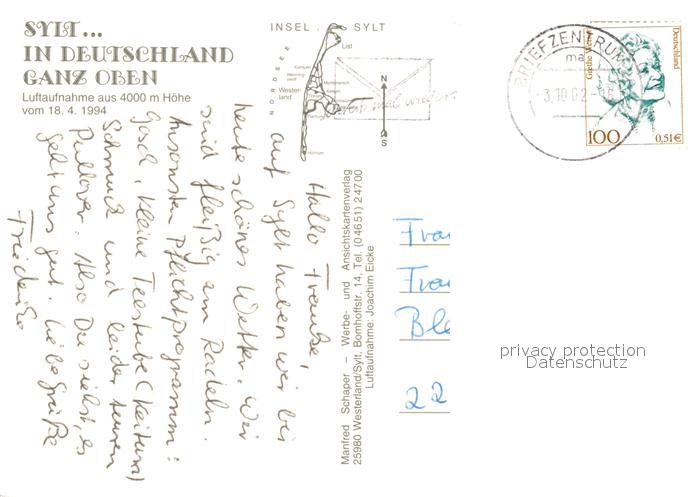 SYLT...
IN DEUTSCHLAND
GANZ OBEN
Luftaufnahme aus 4000 m Höhe
vom 18. 4. 1994
INSEL SYLT
NORDSEE
List
Kampen
Wester-
land
Hörnum
N
S
mal wieder
BRIEFZENTRUM
ma
3.10.02
Deutschland
100
0,51€
Hallo Frauke,
auf Sylt haben wir bei
heute schönes Wetter. Wir
sind fleißig am Radeln.
Ansonsten Pflichtprogramm:
Gosch, kleine Teestube (Keitum)
Schmuck und leider teuren
Pullover. Also Du siehst, es
geht uns gut. Liebe Grüße
Friederike
Manfred Schaper – Werbe- und Ansichtskartenverlag
25980 Westerland/Sylt, Bomhoffstr. 14, Tel. (04651) 24700
Luftaufnahme: Joachim Eicke
Frau
Frau
Ble
22
privacy protection
Datenschutz